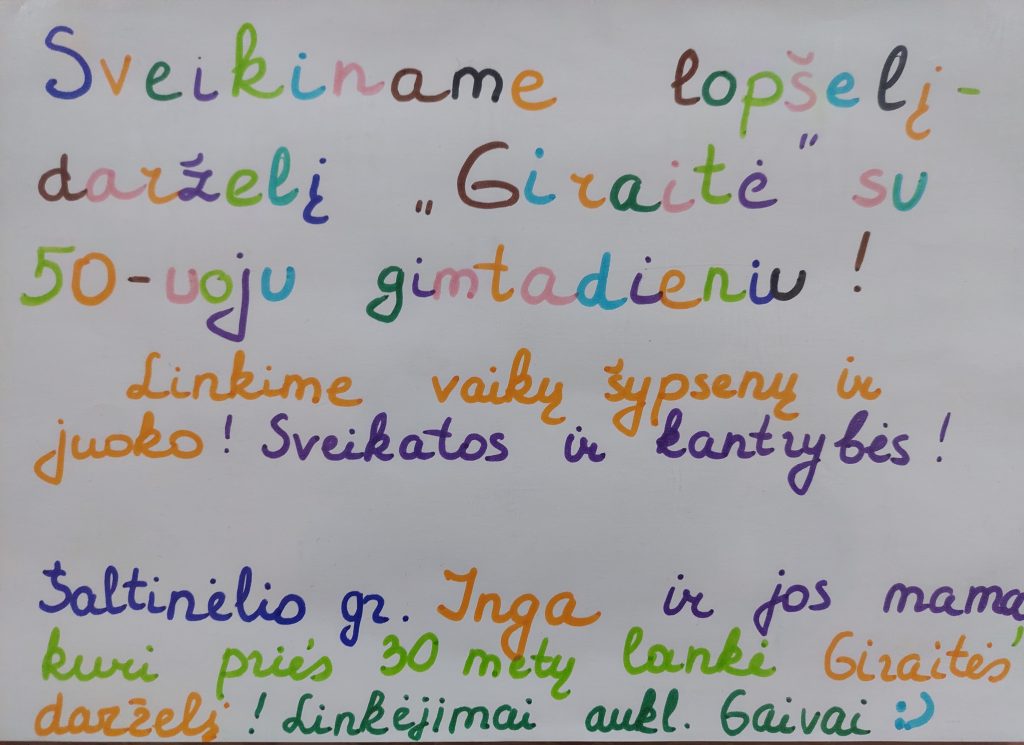 Sveikiname lopšelį-
darželį „Giraitė" su
50-uoju gimtadieniu!
Linkime vaikų šypsenų ir
juoko! Sveikatos ir kantrybės!
Šaltinėlio gr. Inga ir jos mama,
kuri prieš 30 metų lankė Giraitės
darželį! Linkėjimai aukl. Gaivai :)